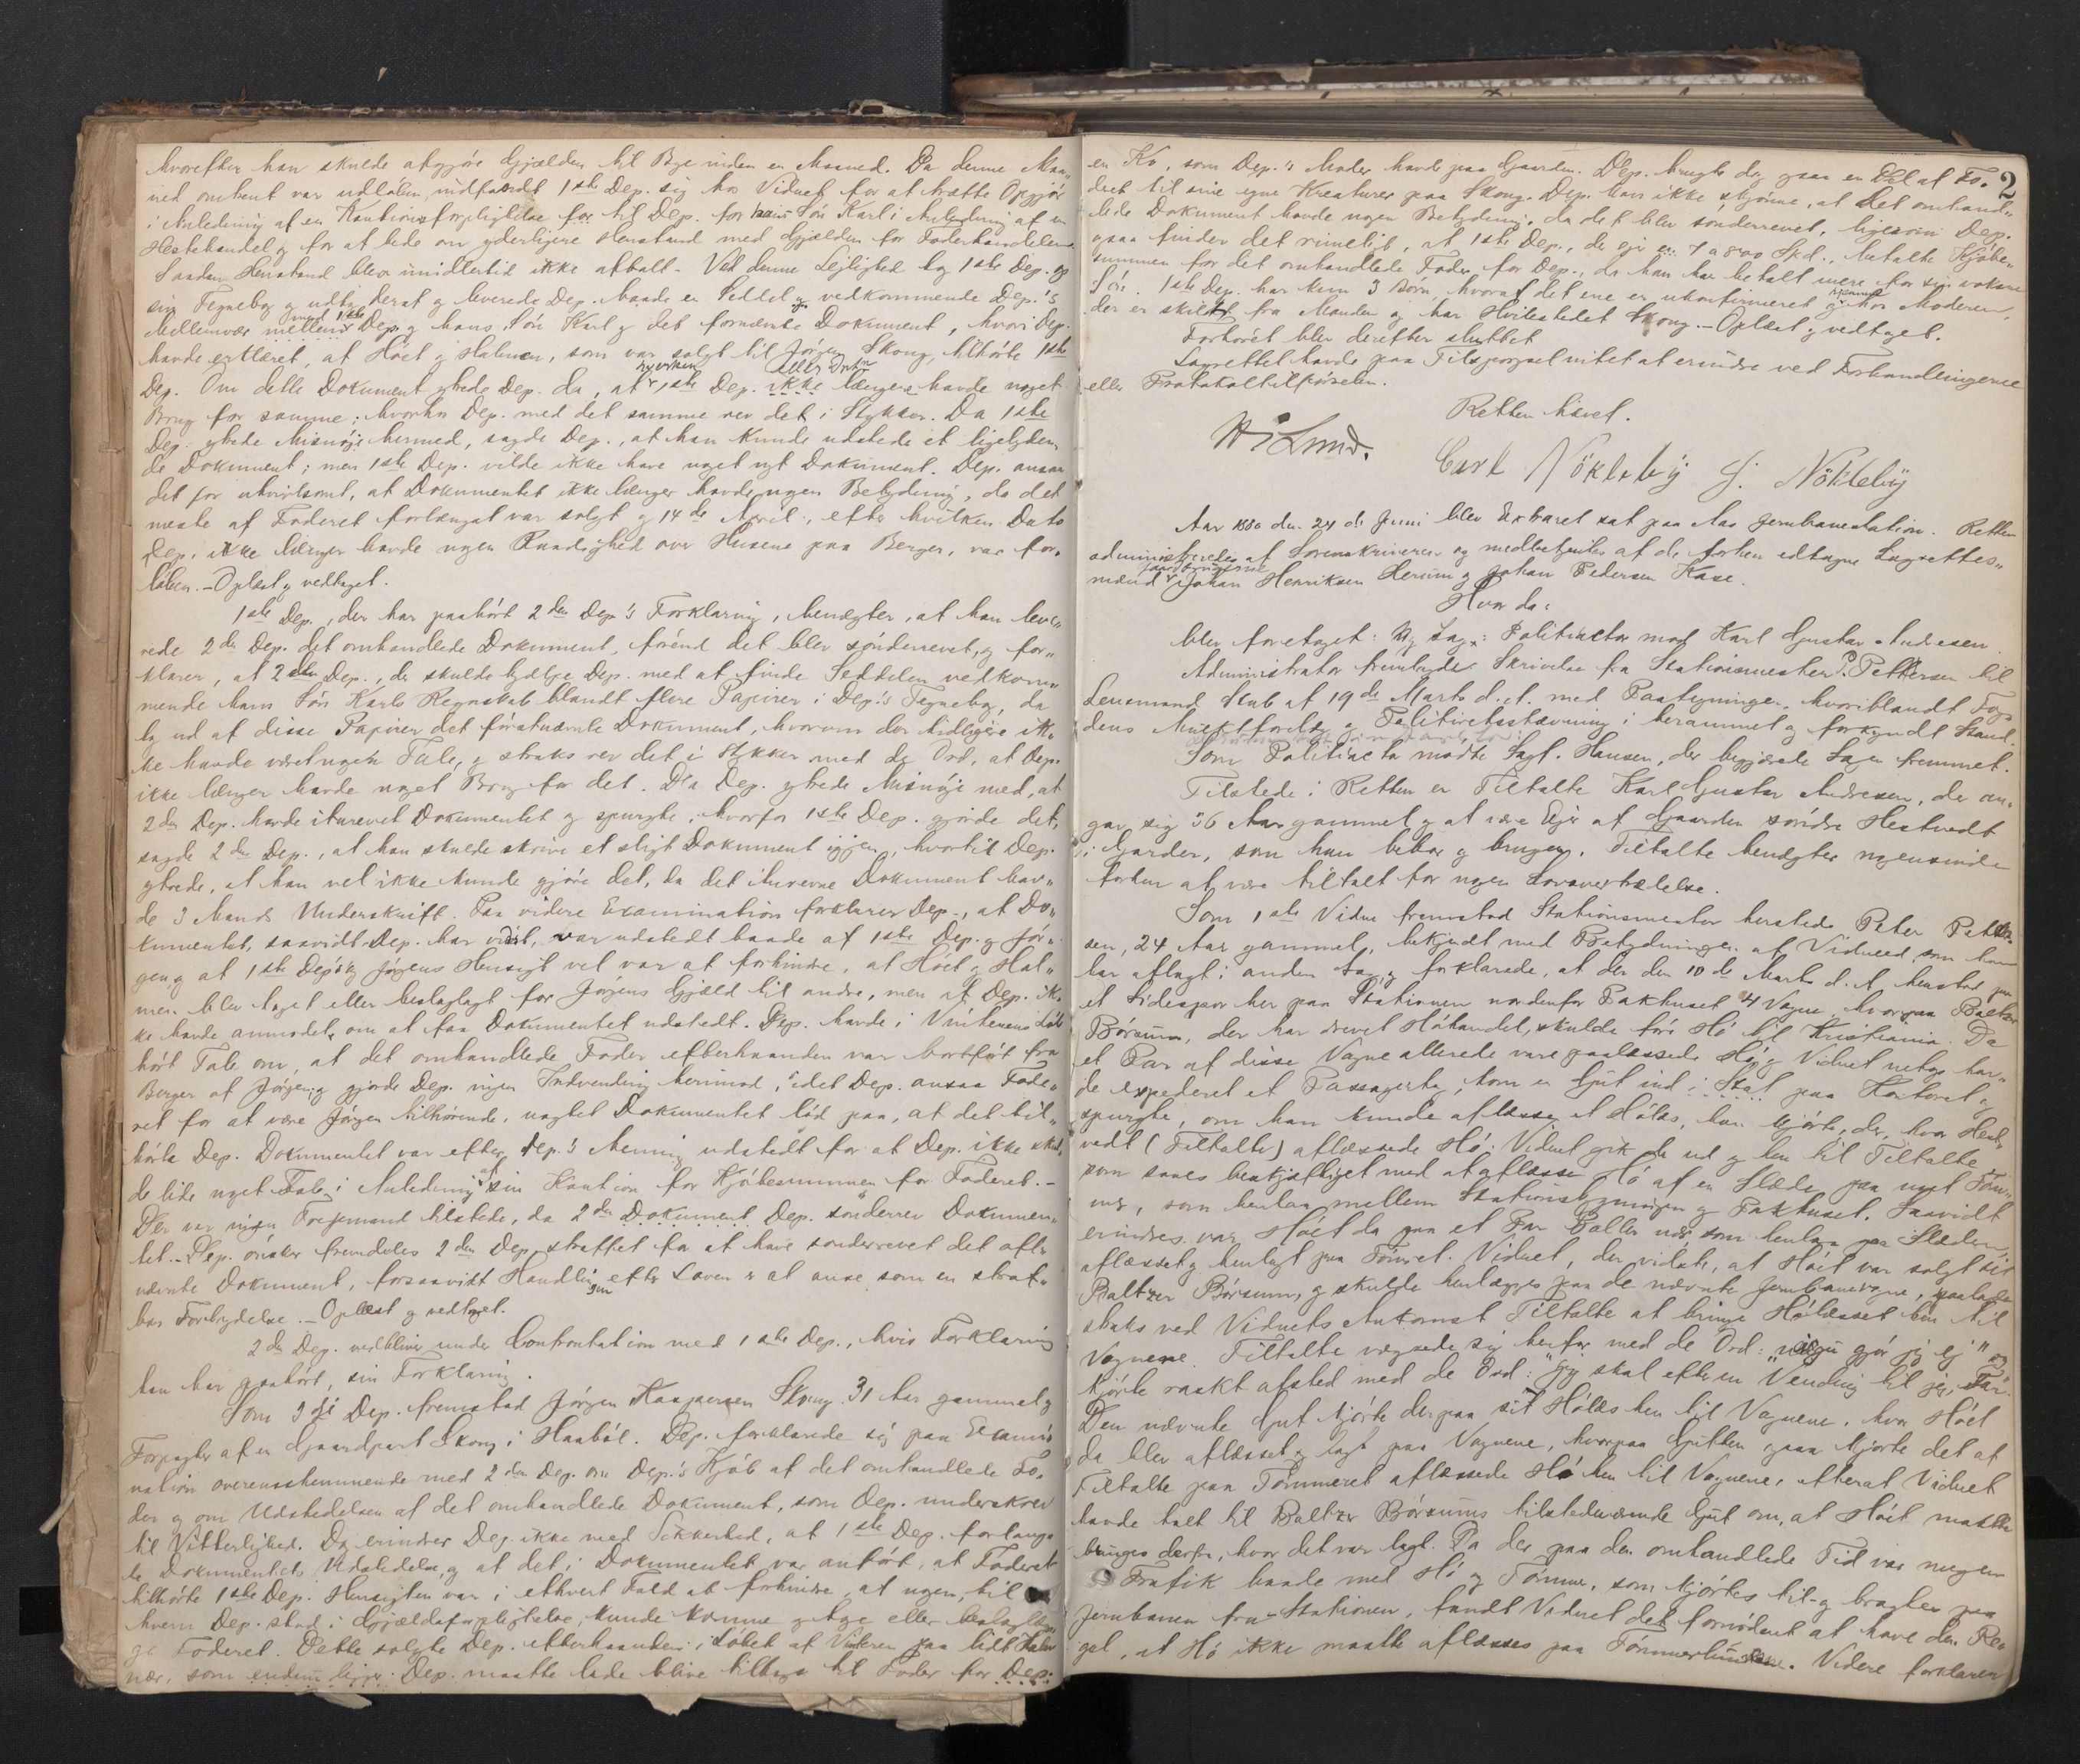 hvorefter han skulde afgjøre Gjælden til Bye inden en Maaned. Da denne Maa„
ned omtrent var udløben, indfandt 1ste Dep. sig hos Vidnet for at træffe Opgjør
i Anledning af en Kautionsforpligtelse for til Dep. for hans Søn Karl i Anledning af en
Hestehandel og for at bede om yderligere Henstand med Gjælden for Foderhandelen.
Saadan Henstand blev imidlertid ikke aftalt. Ved denne Lejlighed tog 1ste Dep. op
sin Tegnebog og udtog deraf og leverede Dep. baade en Seddel vedkommende Dep.'s
Mellemvær med 1ste Dep. og hans Søn Karl og det fornævnte Dokument, hvori Dep.
havde erklæret, at Høet og Halmen, som var solgt til Jørgen Skoug, tilhørte 1ste
Dep. Om dette Dokument ytrede Dep. da, at hverken 1ste Dep. eller ikke længere havde noget
Brug for samme; hvorfor Dep. med det samme rev det i Stykker. Da 1ste
Dep. ytrede Misnøje hermed, sagde Dep., at han kunde udstede et ligelyden„
de Dokument; men 1ste Dep. vilde ikke have noget nyt Dokument. Dep. ansaa
det for utvivlsomt, at Dokumentet ikke længer havde nogen Betydning, da det
meste af Foderet forlængst var solgt og 14de April, efter hvilken Dato
Dep. ikke længer havde nogen Raadighed over Husene paa Berger, var for„
løben. – Oplæst og vedtaget.
1ste Dep., der har paahørt 2den Dep's Forklaring, benægter, at han leve„
rede 2den Dep. det omhandlede Dokument, førend det blev sønderrevet, og for„
klarer, at 2den Dep., der skulde hjælpe Dep. med at finde Seddelen vedkom„
mende hans Søn Karls Regnskab blandt flere Papirer i Dep.'s Tegnebog, da
tog ud af disse Papirer det førstnævnte Dokument, hvorom der tidligere ik„
ke havde været nogen Tale, og straks rev det i Stykker med de Ord, at Dep.
ikke længer havde noget Brug for det. Da Dep. ytrede Misnøje med, at
2den Dep. havde iturevet Dokumentet og spurgte, hvorfor 1ste Dep. gjorde det,
sagde 2den Dep., at han skulde skrive et sligt Dokument igjen, hvortil Dep.
ytrede, at han vel ikke kunde gjøre det, da det iturevne Dokument hav„
de 3 Mands Underskrift. Paa videre Examination forklarer Dep., at Do„
kumentet, saavidt Dep. har vidst, var udstedt baade af 1ste Dep. og Jør„
gen, og at 1ste Dep's og Jørgens Hensigt vel var at forhindre, at Høet og Hal„
men blev taget eller beslaglagt for Jørgens Gjæld til andre, men at Dep. ik„
ke havde anmodet om at faa Dokumentet udstedt. Dep. havde i Vinterens Løb
hørt Tale om, at det omhandlede Foder efterhaanden var bortført fra
Berger af Jørgen, og gjorde Dep. ingen Indvending herimod, idet Dep. ansaa Fode„
ret for at være Jørgen tilhørende, uagtet Dokumentet lød paa, at det til„
hørte Dep. Dokumentet var efter Dep.'s Mening udstedt for at Dep. ikke skul„
de lide noget Tab i Anledning af sin Kaution for Kjøbesummen for Foderet. –
Der var ingen Tredjemand tilstede, da 2den Dokument Dep. sønderrev Dokumen„
tet. – Dep. ønsker fremdeles 2den Dep. straffet for at have sønderrevet det oft„
nævnte Dokument, forsaavidt Handlingen efter Loven er at anse som en straf„
bar Forbrydelse. – Oplæst og vedtaget.
2den Dep. vedbliver under Confrontation med 1ste Dep., hvis Forklaring
han har paahørt, sin Forklaring.
Som 3die Dep. fremstod Jørgen Kaspersen Skoug, 31 Aar gammel, og
Forpagter af en Gaardpart Skoug i Haabøl. Dep. forklarede sig paa Exami„
nation overensstemmende med 2den Dep. om Dep.'s Kjøb af det omhandlede Fo„
der og om Udstedelsen af det omhandlede Dokument, som Dep. underskrev
til Vitterlighed. Dog erindrer Dep. ikke med Sikkerhed, at 1ste Dep. forlang„
te Dokumentets Udstedelse, og at det i Dokumentet var anført, at Foderet
tilhørte 1ste Dep. Hensigten var i ethvert Fald at forhindre, at nogen, til
hvem Dep. stod i Gjældsforpligtelse, kunde komme og tage eller beslaglæg„
ge Foderet. Dette solgte Dep. efterhaanden i Løbet af Vinteren paa lidt Halm
nær, som endnu ligger. Dep. maatte lade blive tilbage til Foder for Dep.
2
en Ko, som Dep.'s Moder havde paa Gaarden. Dep. brugte dog ogsaa en Del af Fo„
deret til sine egne Kreaturer paa Skoug. Dep. kan ikke skjønne, at det omhand„
lede Dokument havde nogen Betydning, da det blev sønderrevet, ligesom Dep.
ogsaa finder det rimeligt, at 1ste Dep., der ejer en 7 a 800 Spd., betalte Kjøbe„
summen for det omhandlede Foder for Dep., da han har betalt mere for sin voksne
Søn. 1ste Dep. har kun 3 Børn, hvoraf det ene er ukonfirmeret og hjemme hos Moderen,
der er skildt fra Manden og har Stuestedet Skoug. – Oplæst og vedtaget.
Forhøret blev derefter sluttet.
Lagrettet havde paa Tilspørgsel intet at erindre ved Forhandlingerne
eller Protokoltilførselen.
Retten hævet.
Lund.
Carl Nökleby J. Nökleby
Aar 1880 den 24de Juni blev Extraret sat paa Aas Jernbanestation. Retten
administreredes af Sorenskriveren og medbetjentes af de forhen edtagne Lagrettes„
mænd Gaardbrugerne Johan Henriksen Herum og Johan Pedersen Kase.
Hvor da:
blev foretaget: Ny Sag: Politiactor mod Karl Gustav Andresen.
Administrator fremlagde Skrivelse fra Stationsmester P. Pettersen til
Lensmand Stub af 19de Marts d.A. med Paategninger, hvoriblandt Fog„
dens Mulktforelæg og Politiretsstævning i berammet og forkyndt Stand.
Som Politiactor mødte Sagf. Hansen, der begjærede Sagen fremmet.
Tilstede i Retten er Tiltalte Karl Gustav Andresen, der an„
gav sig 36 Aar gammel og at være Ejer af Gaarden søndre Hestvedt
i Garder, som han bebor og bruger. Tiltalte benægter nogensinde
forhen at være tiltalt for nogen Lovovertrædelse.
Som 1ste Vidne fremstod Stationsmester hersteds Peter Petter„
sen, 24 Aar gammel, bekjendt med Betydningen af Vidneed, som han
har aflagt i anden Sag, og forklarede, at der den 10de Marts d.A. henstod paa
et Sidespor her paa Stationen nordenfor Pakhuset 4 Vogne, hvorpaa Baltzer
Børsum, der har drevet Høhandel, skulde føre Hø til Kristiania. Da
et Par af disse Vogne allerede vare paalæssede Hø, og Vidnet netop hav„
de expederet et Passagertog, kom en Gut ind i Stat paa Kontoret og
spurgte, om han kunde aflæsse et Hølæs, han kjørte, der, hvor Hest„
vedt (Tiltalte) aflæssede Hø. Vidnet gik da ud og hen til Tiltalte,
som saaes beskjæftiget med at aflæsse Hø af en Slæde paa noget Tøm„
mer, som henlaa mellem Stationsbygningen og Pakhuset. Saavidt
erindres var Høet da paa et Par Baller nær, som henlaa paa Slæden,
aflæsset og henlagt paa Tømret. Vidnet, der vidste, at Høet var solgt til
Baltzer Børsum, og skulde henlægges paa de nævnte Jernbanevogne, paalagde
straks ved Vidnets Ankomst Tiltalte at bringe Hølæsset hen til
Vognene. Tiltalte vægrede sig herfor med de Ord: „ gjør jeg ej" og
kjørte raskt afsted med de Ord: „Jeg skal efter en Vending til jeg, Far".
Den nævnte Gut kjørte derpaa sit Hølæs hen til Vognene, hvor Høet
da blev aflæsset og lagt paa Vognene, hvorpaa Gutten ogsaa kjørte det af
Tiltalte paa Tømmeret aflæssede Hø hen til Vognene, efterat Vidnet
havde talt til Baltzer Børsums tilstedeværende Gut om, at Høet maatte
bringes derfra, hvor det var lagt. Da der paa den omhandlede Tid var megen
Trafik baade med Hø og Tømmer, som kjørtes til og bragtes paa
Jernbanen fra Stationen, fandt Vidnet det fornødent at have den Re„
gel, at Hø ikke maatte aflæsses paa Tømmertomten. Videre forklarer